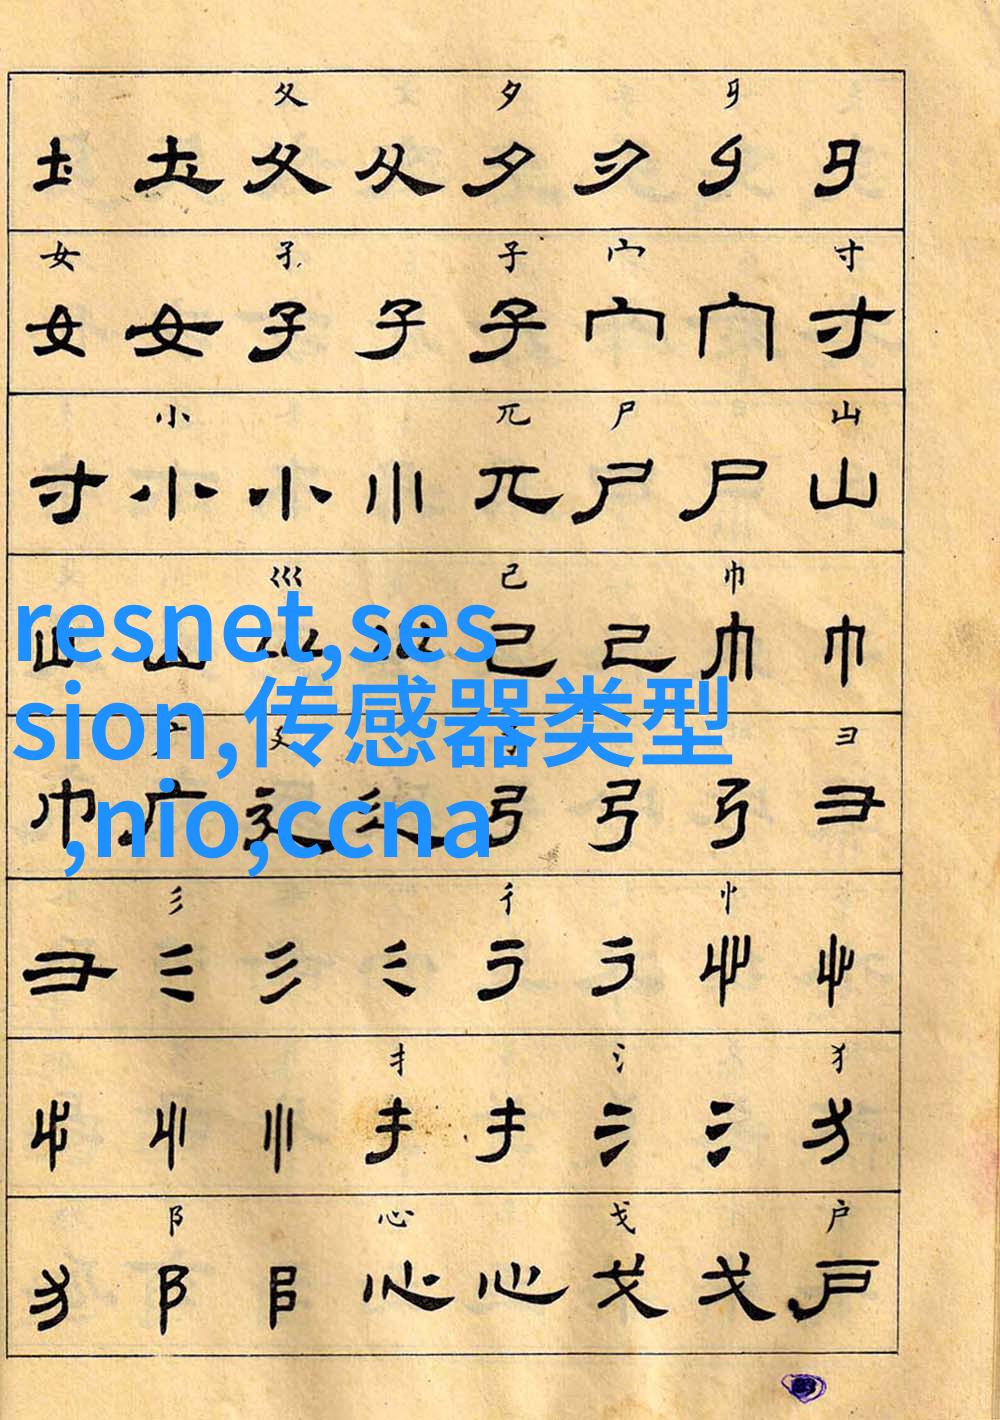 夂 夕 㐄
土 土 夂 夂 夕 夕
女 孑 子 宀 寸
女 女 子 子 子 宀 宀 寸
小 兀 尸 山
寸 小 小 小 兀 尸 尸 山
巛 己 巾
山 山 己 己 巾 巾
resnet,ses
sion,传感器类型
,nio,ccna
广 廴 弓 彐
巾 广 廴 廴 弓 弓 弓 彐
彡 彳 忄
彐 彡 彡 彡 彳 彳 忄 忄
扌 氵 犭
忄 忄 忄 扌 扌 氵 氵 犭
阝 心 戈 户
犭 阝 阝 心 心 戈 戈 户